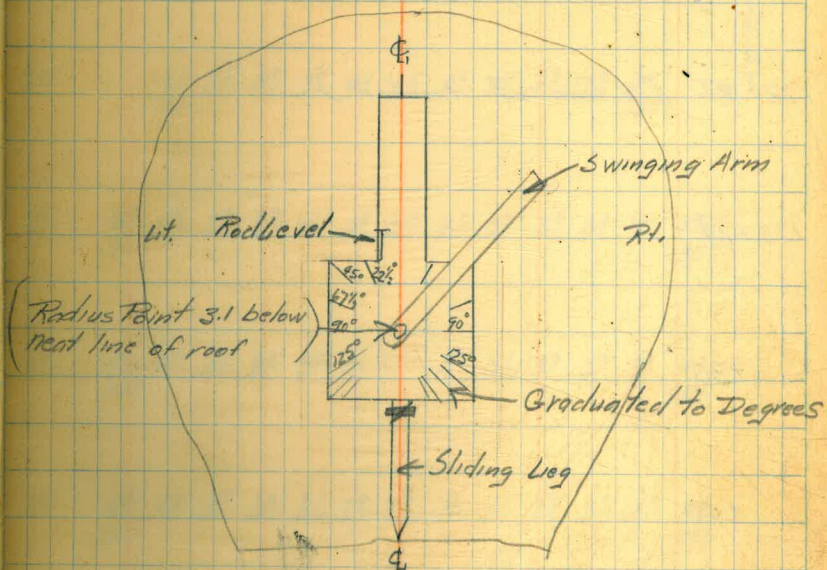 ℄
Swinging Arm
Lt.
Rod Level
Rt.
45°
22½°
67½°
(Radius Point 3.1 below
neat line of roof)
90°
90°
125°
125°
Graduated to Degrees
Sliding Leg
℄